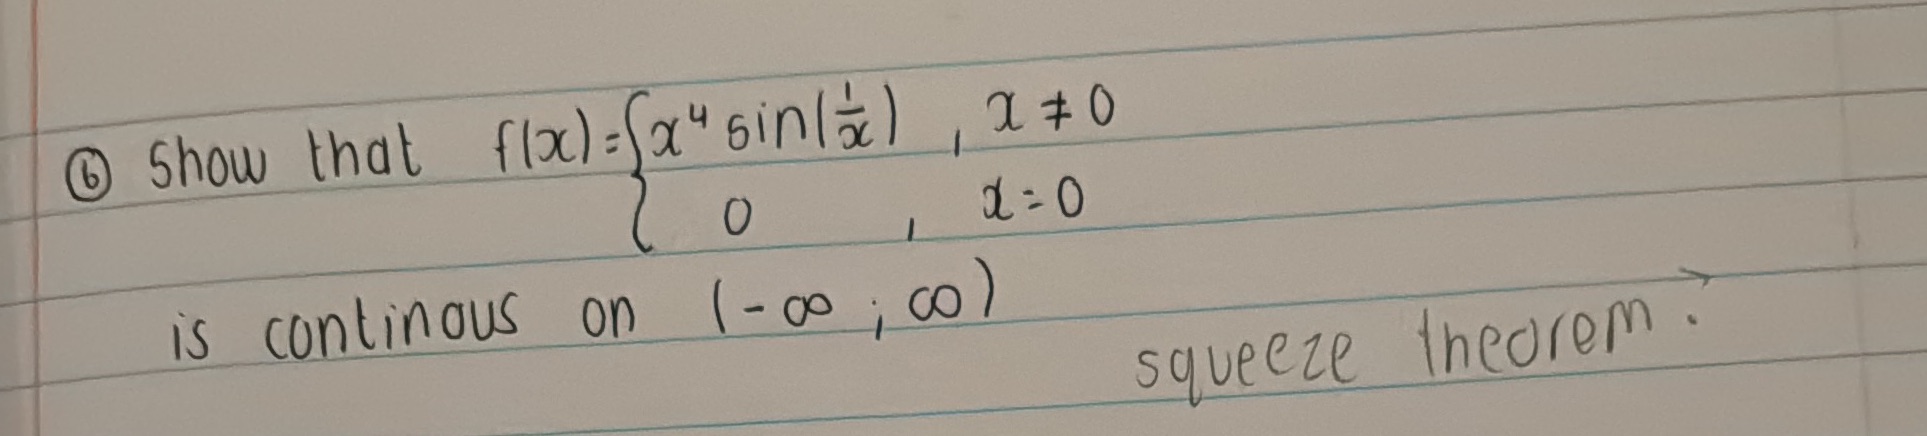 ⑥ Show that f(x)={x⁴ sin(1/x) , x ≠ 0
0 , x=0
is continous on (-∞ ; ∞)
squeeze theorem.